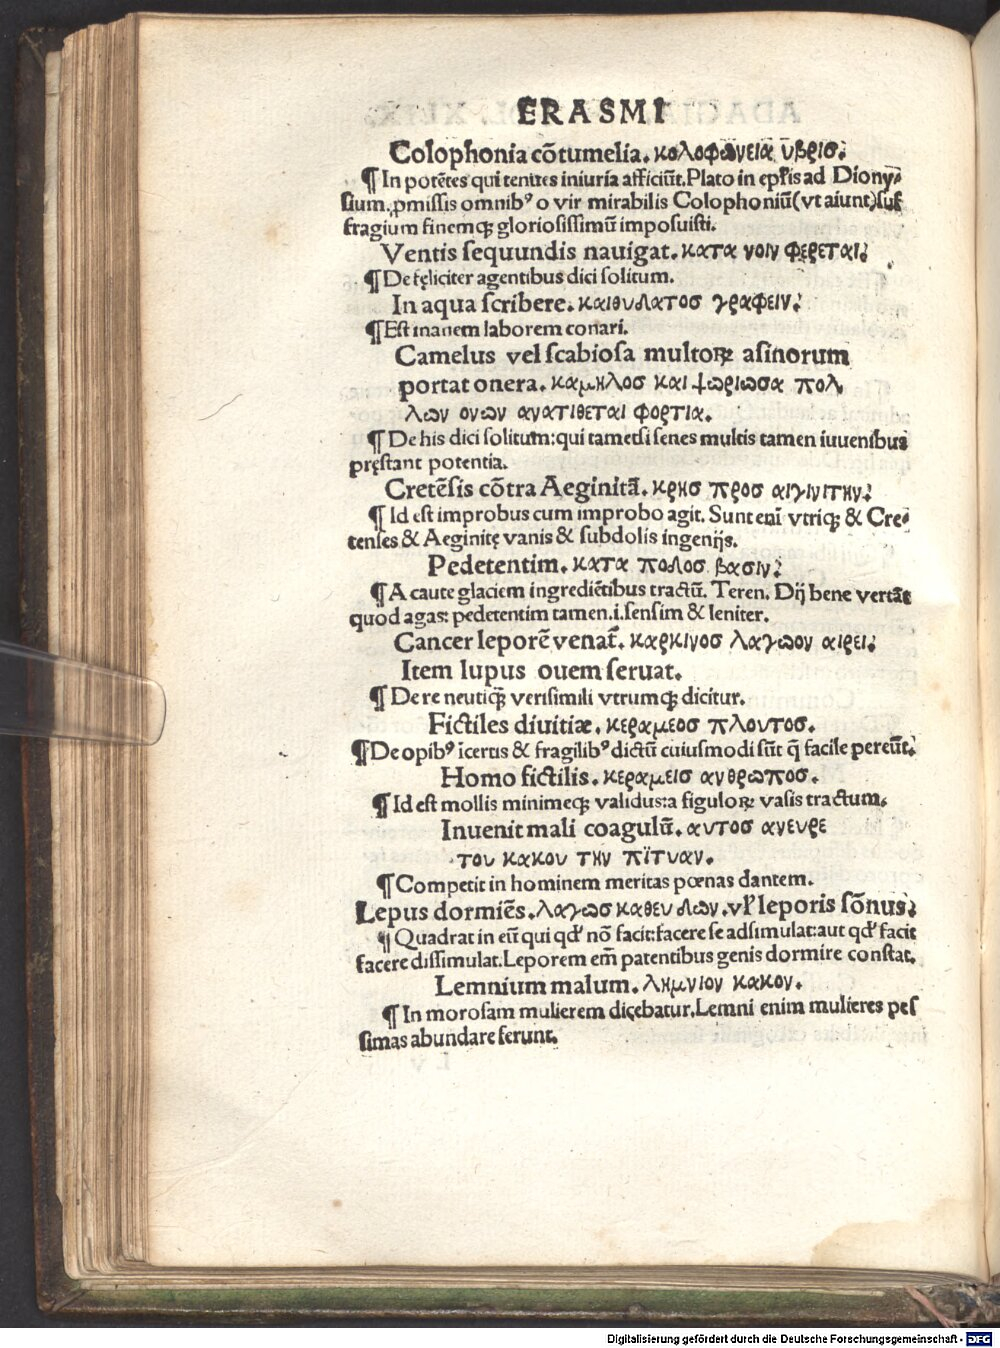 ERASMI
Colophonia cõtumelia. κολοφωνεια υβρισ.
¶ In potẽtes qui tenues iniuria afficiũt. Plato in epľis ad Diony-
sium. ꝓmissis omnibꝰ o vir mirabilis Colophoniũ(vt aiunt)suf
fragium finemqꝫ gloriosissimũ imposuisti.
Ventis sequundis nauigat. κατα νοιν φερεται.
¶ De fęliciter agentibus dici solitum.
In aqua scribere. γραφειν.
¶ Est inanem laborem conari.
Camelus vel scabiosa multoꝝ asinorum
portat onera. καμηλοσ και ψωριωσα πολ
λων ονων ανατιθεται φορτια.
¶ De his dici solitum: qui tametsi senes multis tamen iuuenibus
pręstant potentia.
Cretẽsis cõtra Aeginitã. κρησ προσ αιγινιτην.
¶ Id est improbus cum improbo agit. Sunt eni vtriqꝫ & Cre-
tenses & Aeginitę vanis & subdolis ingenijs.
Pedetentim. κατα πολοσ βασιν.
¶ A caute glaciem ingrediẽtibus tractũ. Teren. Dij bene vertãt
quod agas: pedetentim tamen .i. sensim & leniter.
Cancer leporẽ venat̃. καρκινοσ λαγωον αιρει.
Item lupus ouem seruat.
¶ De re neutiqꝫ verisimili vtrumqꝫ dicitur.
Fictiles diuitiæ. κεραμεοσ πλουτοσ.
¶ De opibꝰ icertis & fragilibꝰ dictũ cuiusmodi sũt q̃ facile pereũt.
Homo fictilis. κεραμεισ ανθρωποσ.
¶ Id est mollis minimeqꝫ validus: a figuloꝝ vasis tractum.
Inuenit mali coagulũ. αυτοσ ανευρε
του κακου την πϊτυαν.
¶ Competit in hominem meritas pœnas dantem.
Lepus dormiẽs. λαγωσ καθευδων. vľ leporis sõnus.
¶ Quadrat in eũ qui qđ nõ facit: facere se adsimulat: aut qđ facit
facere dissimulat. Leporem em̃ patentibus genis dormire constat.
Lemnium malum. λημνιον κακον.
¶ In morosam mulierem dicebatur. Lemni enim mulieres pes
simas abundare ferunt.
Digitalisierung gefördert durch die Deutsche Forschungsgemeinschaft - DFG